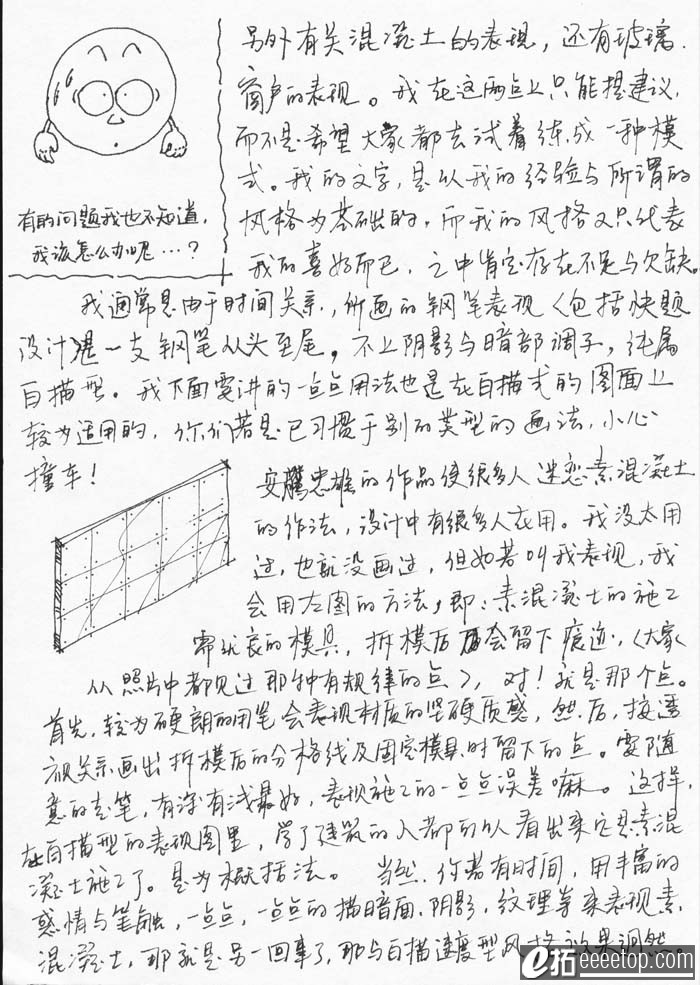 另外有关混凝土的表现，还有玻璃.
窗户的表现。我在这两点上只能提建议，
而不是希望大家都去试着练成一种模
式。我的文字，是以我的经验与所谓的
风格为基础的，而我的风格又只代表
我的喜好而已，之中肯定存在不足与欠缺。
有的问题我也不知道，
我该怎么办呢…？
我通常是由于时间关系，所画的钢笔表现〈包括快题
设计是一支钢笔从头至尾，不上阴影与暗部调子，纯属
白描型。我下面要讲的一点点用法也是在白描式的图面上
较为适用的，你们若是已习惯于别的类型的画法，小心
撞车！
安藤忠雄的作品使很多人迷恋素混凝土
的作法，设计中有很多人在用。我没太用
过，也就没画过，但如若叫我表现，我
会用左图的方法，即：素混凝土的施工
需优良的模具，拆模后会留下痕迹，〈大家
从照片中都见过那种有规律的点〉，对！就是那个点。
首先，较为硬朗的用笔会表现材质的坚硬质感，然后，按透
视关系画出拆模后的分格线及固定模具时留下的点。要随
意的去笔，有深有浅最好，表现施工的一点点误差嘛。这样，
在白描型的表现图里，学了建筑的人都可以看出来它是素混
凝土施工了。是为概括法。 当然，你若有时间，用丰富的
感情与笔触，一点点，一点点的描暗面，阴影，纹理等来表现素
混凝土，那就是另一回事了，那与白描速度型风格效果迥然。
e拓 eeeetop.com